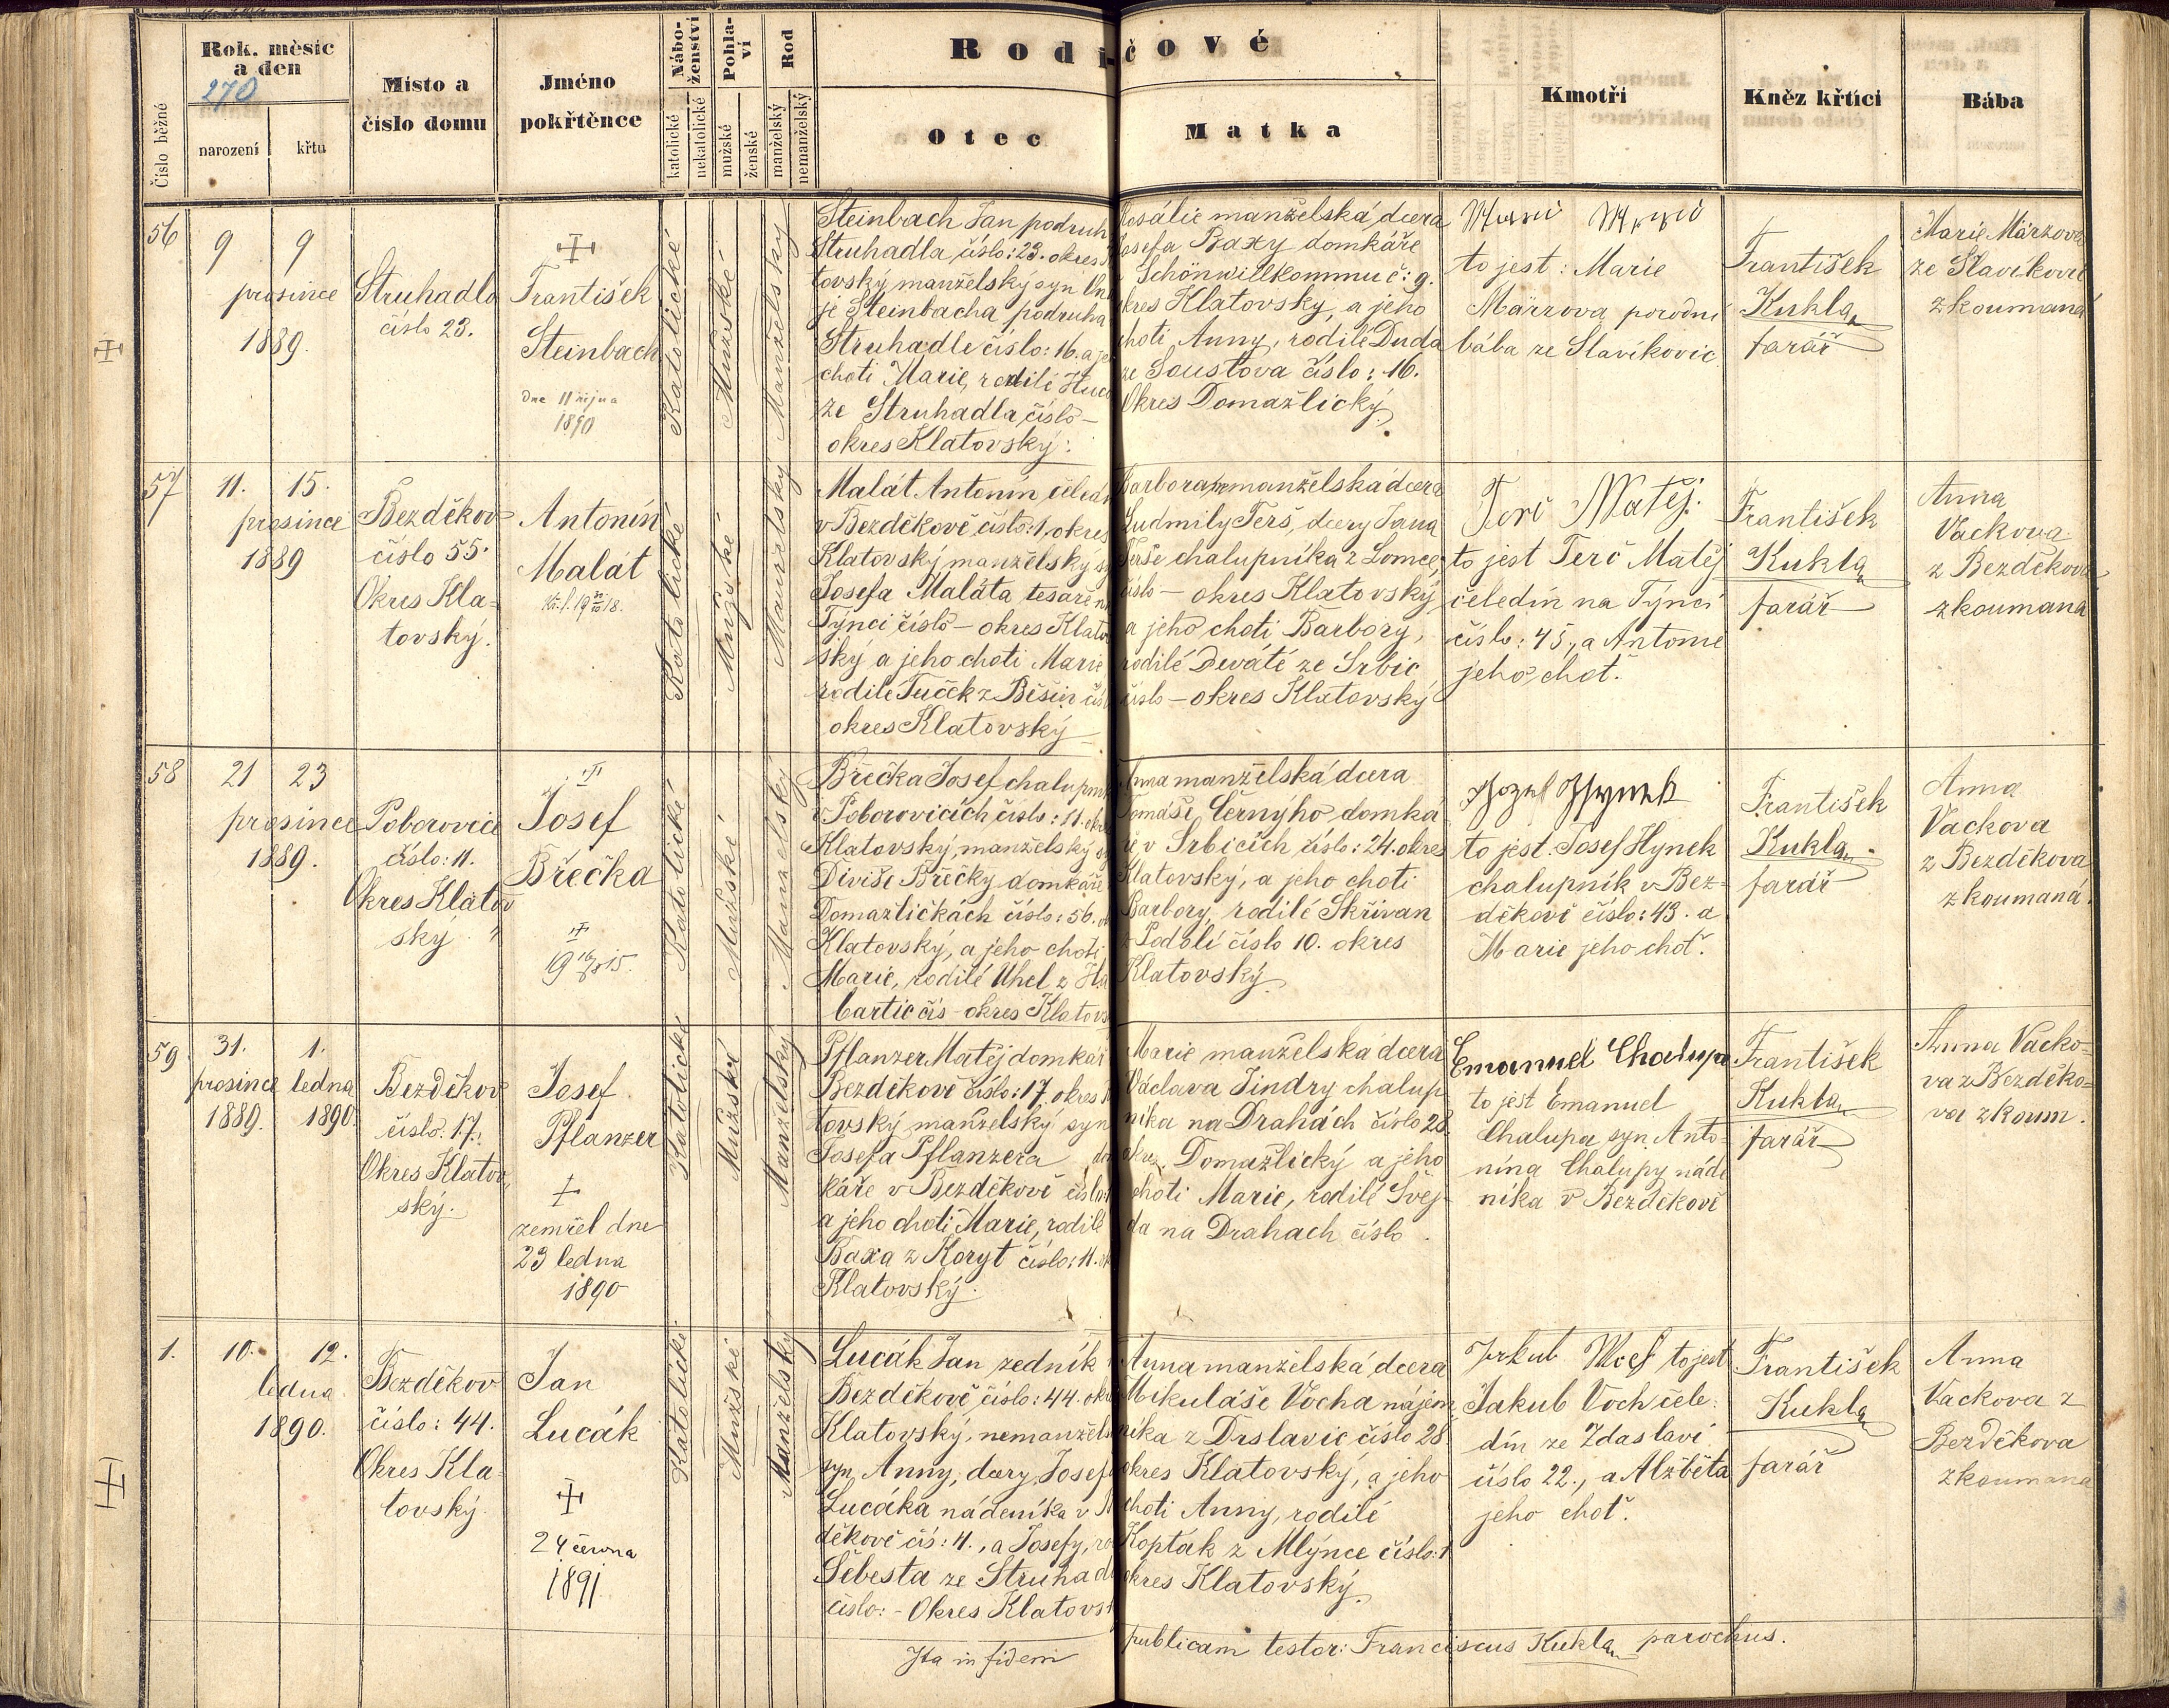 Rodičové
Rok, měsíc
a den
270
narození
křtu
Číslo běžné
Místo a
číslo domu
Jméno
pokřtěnce
Nábo-
ženství
katolické
nekatolické
Pohla-
ví
mužské
ženské
Rod
manželský
nemanželský
Otec
Matka
Kmotři
Kněz křtící
Bába
56
9 9
prosince
1889.
Struhadlo
číslo 23.
František
Steinbach
dne 11 října
1890
Katolické
Mužské
Manželský
Steinbach Jan podruh
Struhadla, číslo: 23. okres
tovský manželský syn
je Steinbacha podruha
Struhadle číslo: 16. a
choti Marie, rodilé
ze Struhadla, číslo –
okres Klatovský.
Rosálie manželská dcera
Josefa Baxy domkáře
Schönwillkommu č: 9.
okres Klatovsky, a jeho
choti Anny, rodilé Duda
ze Soustova číslo: 16.
Okres Domažlický
to jest: Marie
Märzova porodní
bába ze Slavíkovic
František
Kukla
farář
Marie Märzova
ze Slavíkovic
zkoumaná
57
11. 15.
prosince
1889
Bezděkov
číslo 55.
Okres Kla-
tovský.
Antonín
Malát
Katolické
Mužské
Manželský
Malát Antonín
v Bezděkově, číslo: 1, okres
Klatovský manželský
Josefa Maláta tesaře
Týnci číslo – okres
ský a jeho choti Marie
rodilé Tuček z Běšin
okres Klatovský
Barbora nemanželská dcera
Ludmily Terš, dcery Jana
Terše chalupníka z Lomce
číslo – okres Klatovský
a jeho choti Barbory,
rodilé Deváté ze Srbic
číslo – okres Klatovský
Terč Matěj.
to jest Terč Matěj
čeledín na Týnci
číslo: 45., a Antonie
jeho choť.
František
Kukla
farář
Anna
Vackova
z Bezděkova
zkoumaná
58
21 23
prosince
1889.
Poborovice
číslo: 11.
Okres Klatov
ský
Josef
Břečka
Katolické
Mužské
Manželský
Břečka Josef
v Poborovicích číslo: 11.
Klatovský, manželský
Diviše Břečky domkáře
Domažličkách číslo: 56.
Klatovský, a jeho choti
Marie, rodilé Uhel z
bartic čís – okres
Anna manželská dcera
Tomáše Černyho domká
ře v Srbicích číslo: 24. okres
Klatovský, a jeho choti
Barbory, rodilé Skřivan
z Podolí číslo 10. okres
Klatovský
to jest: Josef Hynek
chalupník v Bez-
děkově číslo: 43. a
Marie jeho choť.
František
Kukla
farář
Anna
Vackova
z Bezděkova
zkoumaná.
59
31. 1.
prosince ledna
1889. 1890.
Bezděkov
číslo: 17.
Okres Klatov
ský.
Josef
Pflanzer
zemřel dne
23 ledna
1890
Katolické
Mužský
Manželský
Pflanzer Matěj
Bezděkově číslo: 17. okres
tovský manželský syn
Josefa Pflanzera
káře v Bezděkově
a jeho choti Marie, rodilé
Baxa z Koryt číslo: 11.
Klatovský.
Marie manželska dcera
Václava Jindry chalup
níka na Drahách číslo 28.
Domažlický a jeho
choti Marie, rodilé Švej-
da na Drahach číslo .
Emanuel Chalupa
to jest Emanuel
Chalupa, syn Anto-
nína Chalupy náde
níka v Bezděkově
František
Kukla
farář
Anna Vacko-
va z Bezděko-
va zkoum.
1.
10. 12.
ledna
1890.
Bezděkov
číslo: 44.
Okres Kla
tovský
Jan
Lucák
24 června
1891
Katolické
Mužské
Manželský
Lucák Jan zedník
Bezděkově číslo: 44.
Klatovský, nemanžels
syn, Anny, dcery
Lucáka nádeníka v
děkově čís: 4., a Josefy,
Šebesta ze
číslo: – Okres
Anna manželská dcera
Mikuláše Vocha nájem
níka z Drslavic číslo 28
okres Klatovský, a jeho
choti Anny, rodilé
Kopták z Mlýnce číslo: 1
okres Klatovský
to jest
Jakub Voch čele-
dín ze Zdaslaví
číslo 22., a Alžběta
jeho choť.
František
Kukla
farář
Anna
Vackova z
Bezděkova
zkoumaná
Ita in fidem publicam testor: Franciscus Kukla parochus.